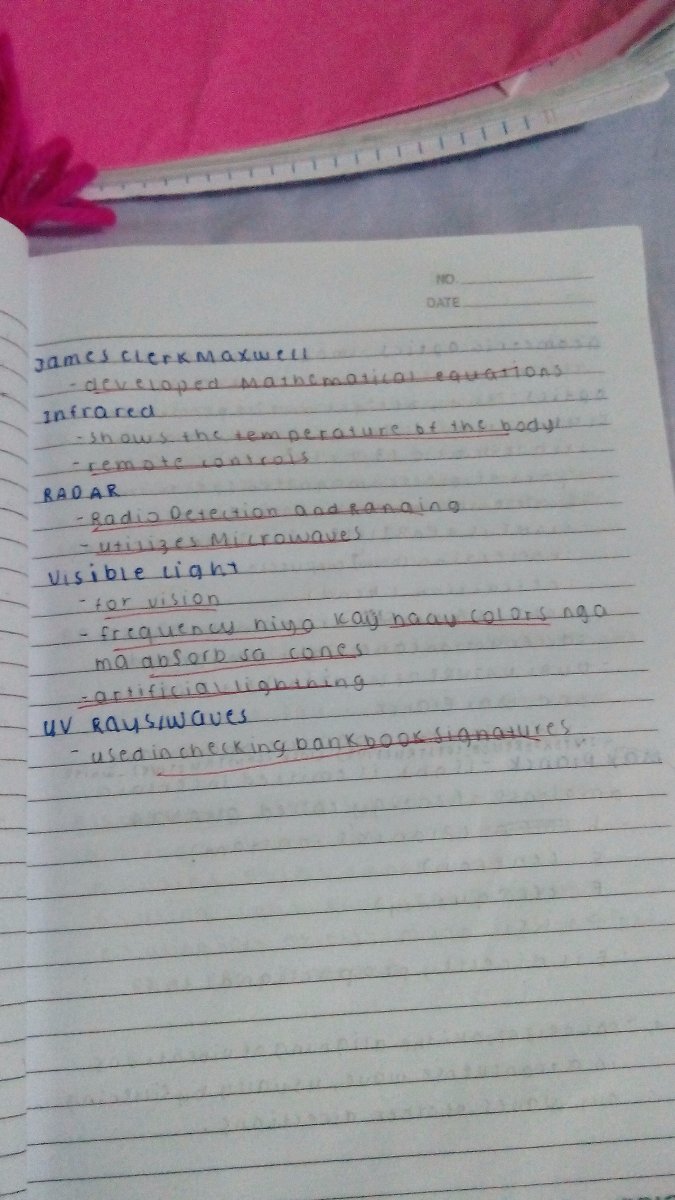 NO
DATE
James Clerk Maxwell
- developed Mathematical equations
Infrared
- shows the temperature of the body
- remote controls
RADAR
- Radio Detection and Ranging
- utilizes Microwaves
Visible Light
- for vision
- frequency niya kay naay colors nga
ma absorb sa cones
- artificial lighthing
UV Rays/Waves
- used in checking bankbook signatures